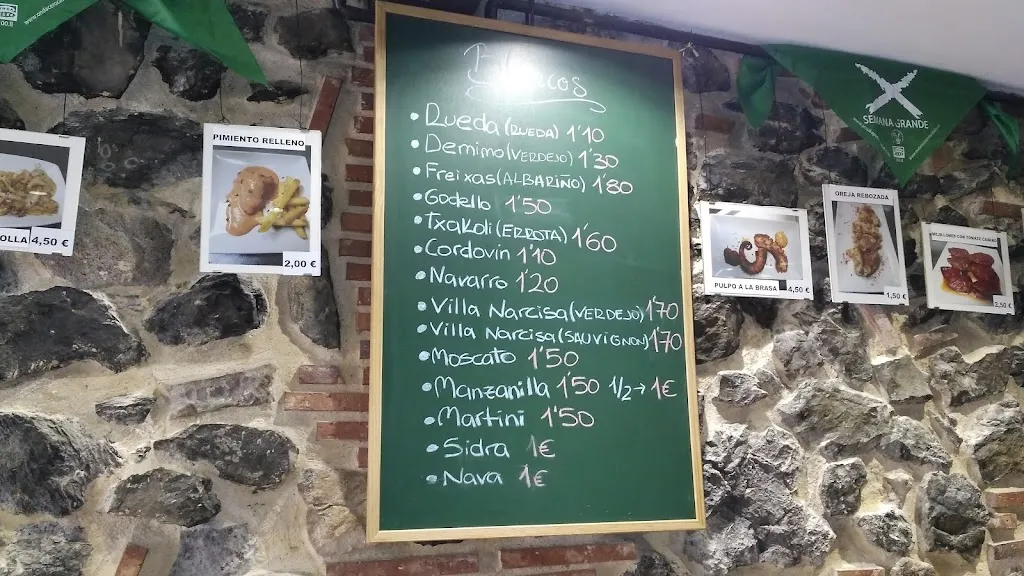 PIMIENTO RELLENO
2,00 €
OLLA 4,50 €
Blancos
• Rueda (RUEDA) 1'10
• Demimo (VERDEJO) 1'30
• Freixas (ALBARIÑO) 1'80
• Godello 1'50
• Txakoli (ERROTA) 1'60
• Cordovin 1'10
• Navarro 1'20
• Villa Narcisa (VERDEJO) 1'70
• Villa Narcisa (SAUVIGNON) 1'70
• Moscato 1'50
• Manzanilla 1'50 1/2 → 1€
• Martini 1'50
• Sidra 1€
• Nava 1€
SEMANA GRANDE
PULPO A LA BRASA 4,50 €
OREJA REBOZADA
1,50 €
3,50 €